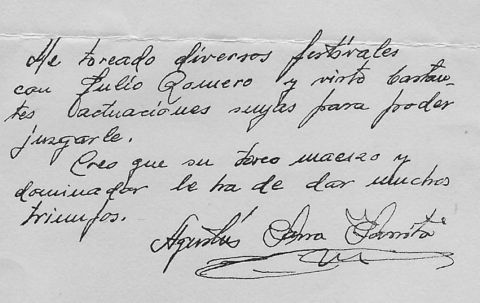 He toreado diversos festivales
con Julio Romero y visto bastan-
tes actuaciones suyas para poder
juzgarle.
Creo que su toreo macizo y
dominador le ha de dar muchos
triunfos.
Agustín Parra "Parrita"